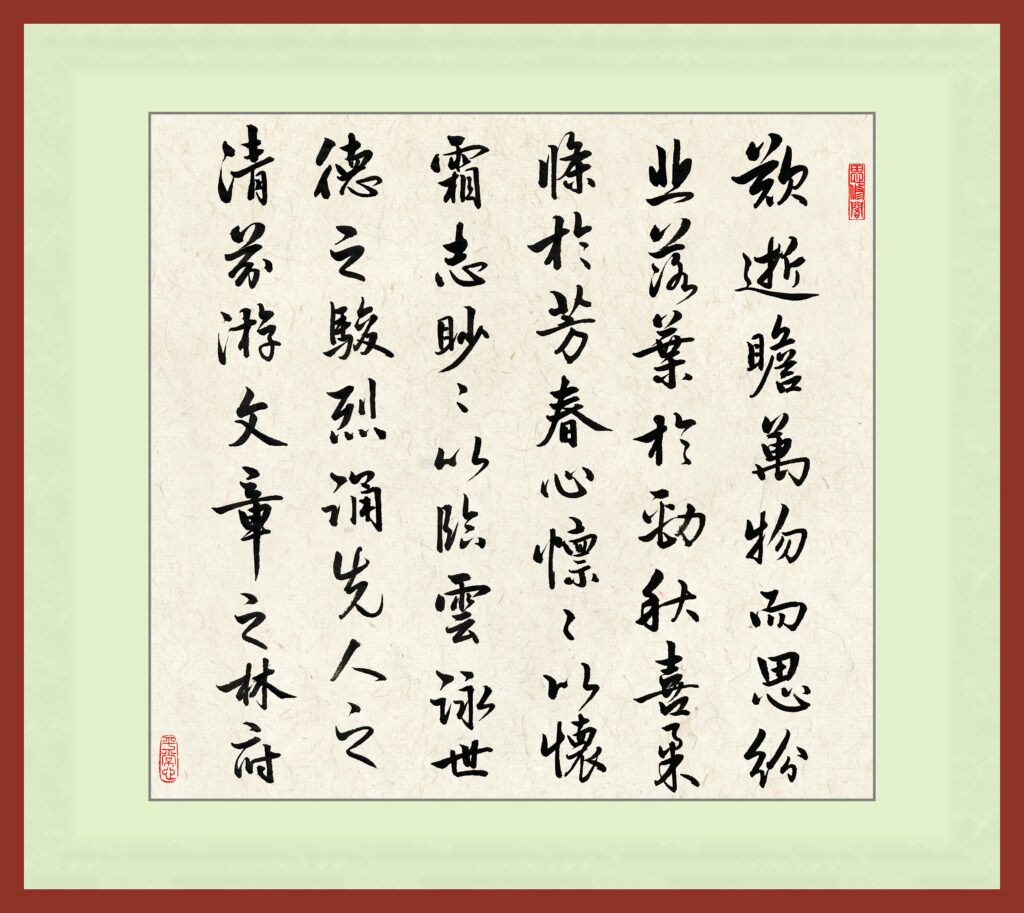 歎逝瞻萬物而思紛
悲落葉於勁秋喜柔
條於芳春心懍〻以懷
霜志眇〻以臨雲詠世
德之駿烈誦先人之
清芬游文章之林府
平常心